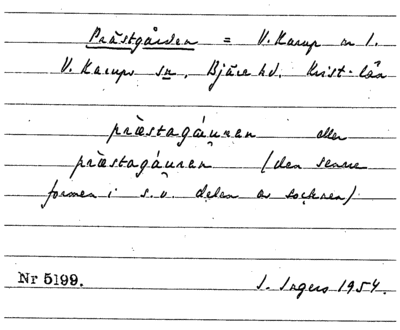 Prästgården = V. Karup nr 1.
V. Karups sn, Bjäre hd. Krist. län
præstagáu̯ren eller
præstagáu̯ren (den senare
formen i s.v. delen av socknen)
Nr 5199. I. Ingers 1954.